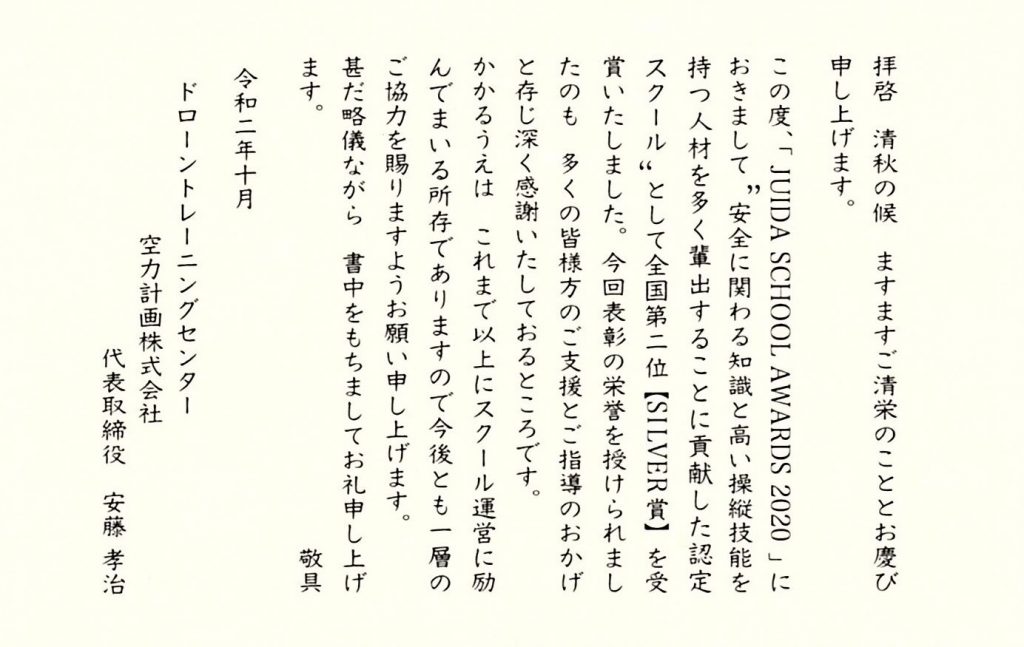 拝啓　清秋の候　ますますご清栄のこととお慶び
申し上げます。
この度、「JUIDA SCHOOL AWARDS 2020」に
おきまして〝安全に関わる知識と高い操縦技能を
持つ人材を多く輩出することに貢献した認定
スクール〟として全国第二位【SILVER賞】を受
賞いたしました。今回表彰の栄誉を授けられまし
たのも　多くの皆様方のご支援とご指導のおかげ
と存じ深く感謝いたしておるところです。
かかるうえは　これまで以上にスクール運営に励
んでまいる所存でありますので今後とも一層の
ご協力を賜りますようお願い申し上げます。
甚だ略儀ながら　書中をもちましてお礼申し上げ
ます。　敬具
令和二年十月
ドローントレーニングセンター
空力計画株式会社
代表取締役　安藤 孝治